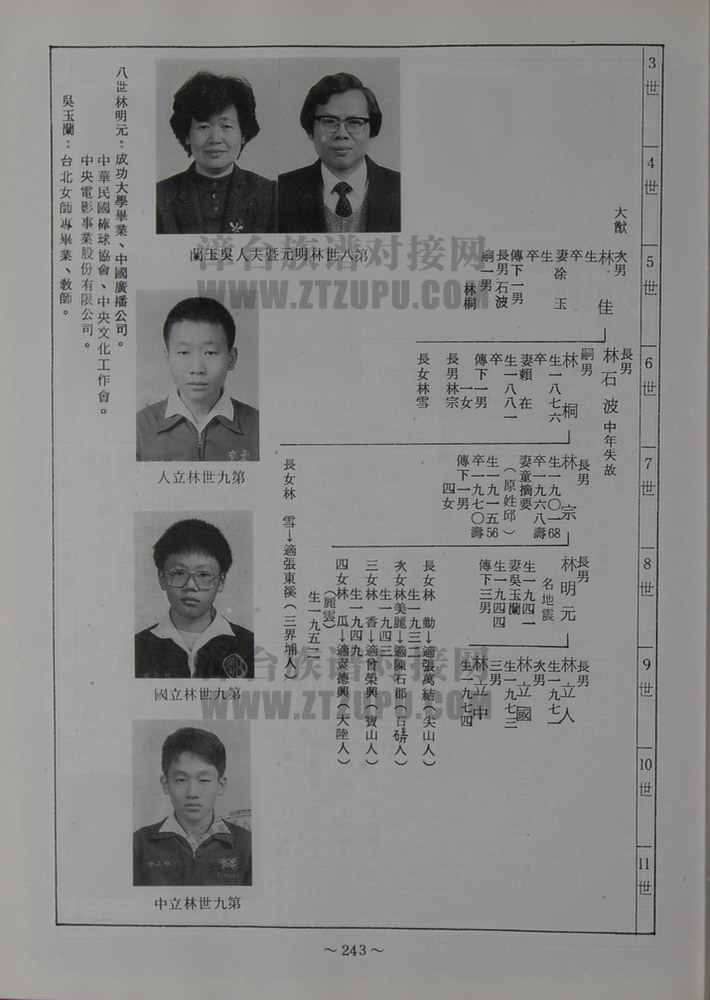 3世
4世
5世
6世
7世
8世
9世
10世
11世
大猷
次男
林佳
生
卒
妻凃玉
生
卒
傳下一男
長男石波
嗣一男
林桐
長男
林石波中年失故
嗣男
林桐
生一八七六
卒
妻賴在
生一八八一
卒
傳下一男
一女
長男林宗
長女林雪
長男
林宗
生一九〇一
卒一九六八壽68
妻童摘要
(原姓邱)
生一九一五
卒一九七〇壽56
傳下一男
四女
長女林雪→適張東溪(三界埔人)
長男
林明元
名地震
生一九四一
妻吳玉蘭
生一九四四
傳下三男
長女林勤→適張萬結(尖山人)
生一九三二
次女林美麗→適陳石郡(石硦人)
生一九四三
三女林香→適曾榮興(寶山人)
生一九四九
四女林瓜→適袁德興(大陸人)
(麗雲)
生一九五二
長男
林立人
生一九七一
次男
林立國
生一九七三
三男
林立中
生一九七四
第八世林明元暨夫人吳玉蘭
第九世林立人
第九世林立國
第九世林立中
八世林明元:成功大學畢業、中國廣播公司。
中華民國棒球協會、中央文化工作會。
中央電影事業股份有限公司。
吳玉蘭:台北女師專畢業、教師。
漳台族谱对接网
WWW.ZTZUPU.COM
漳台族谱对接网
WWW.ZTZUPU.COM
~243~